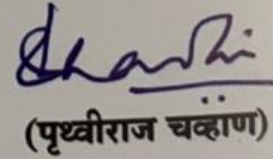 (पृथ्वीराज चव्हाण)